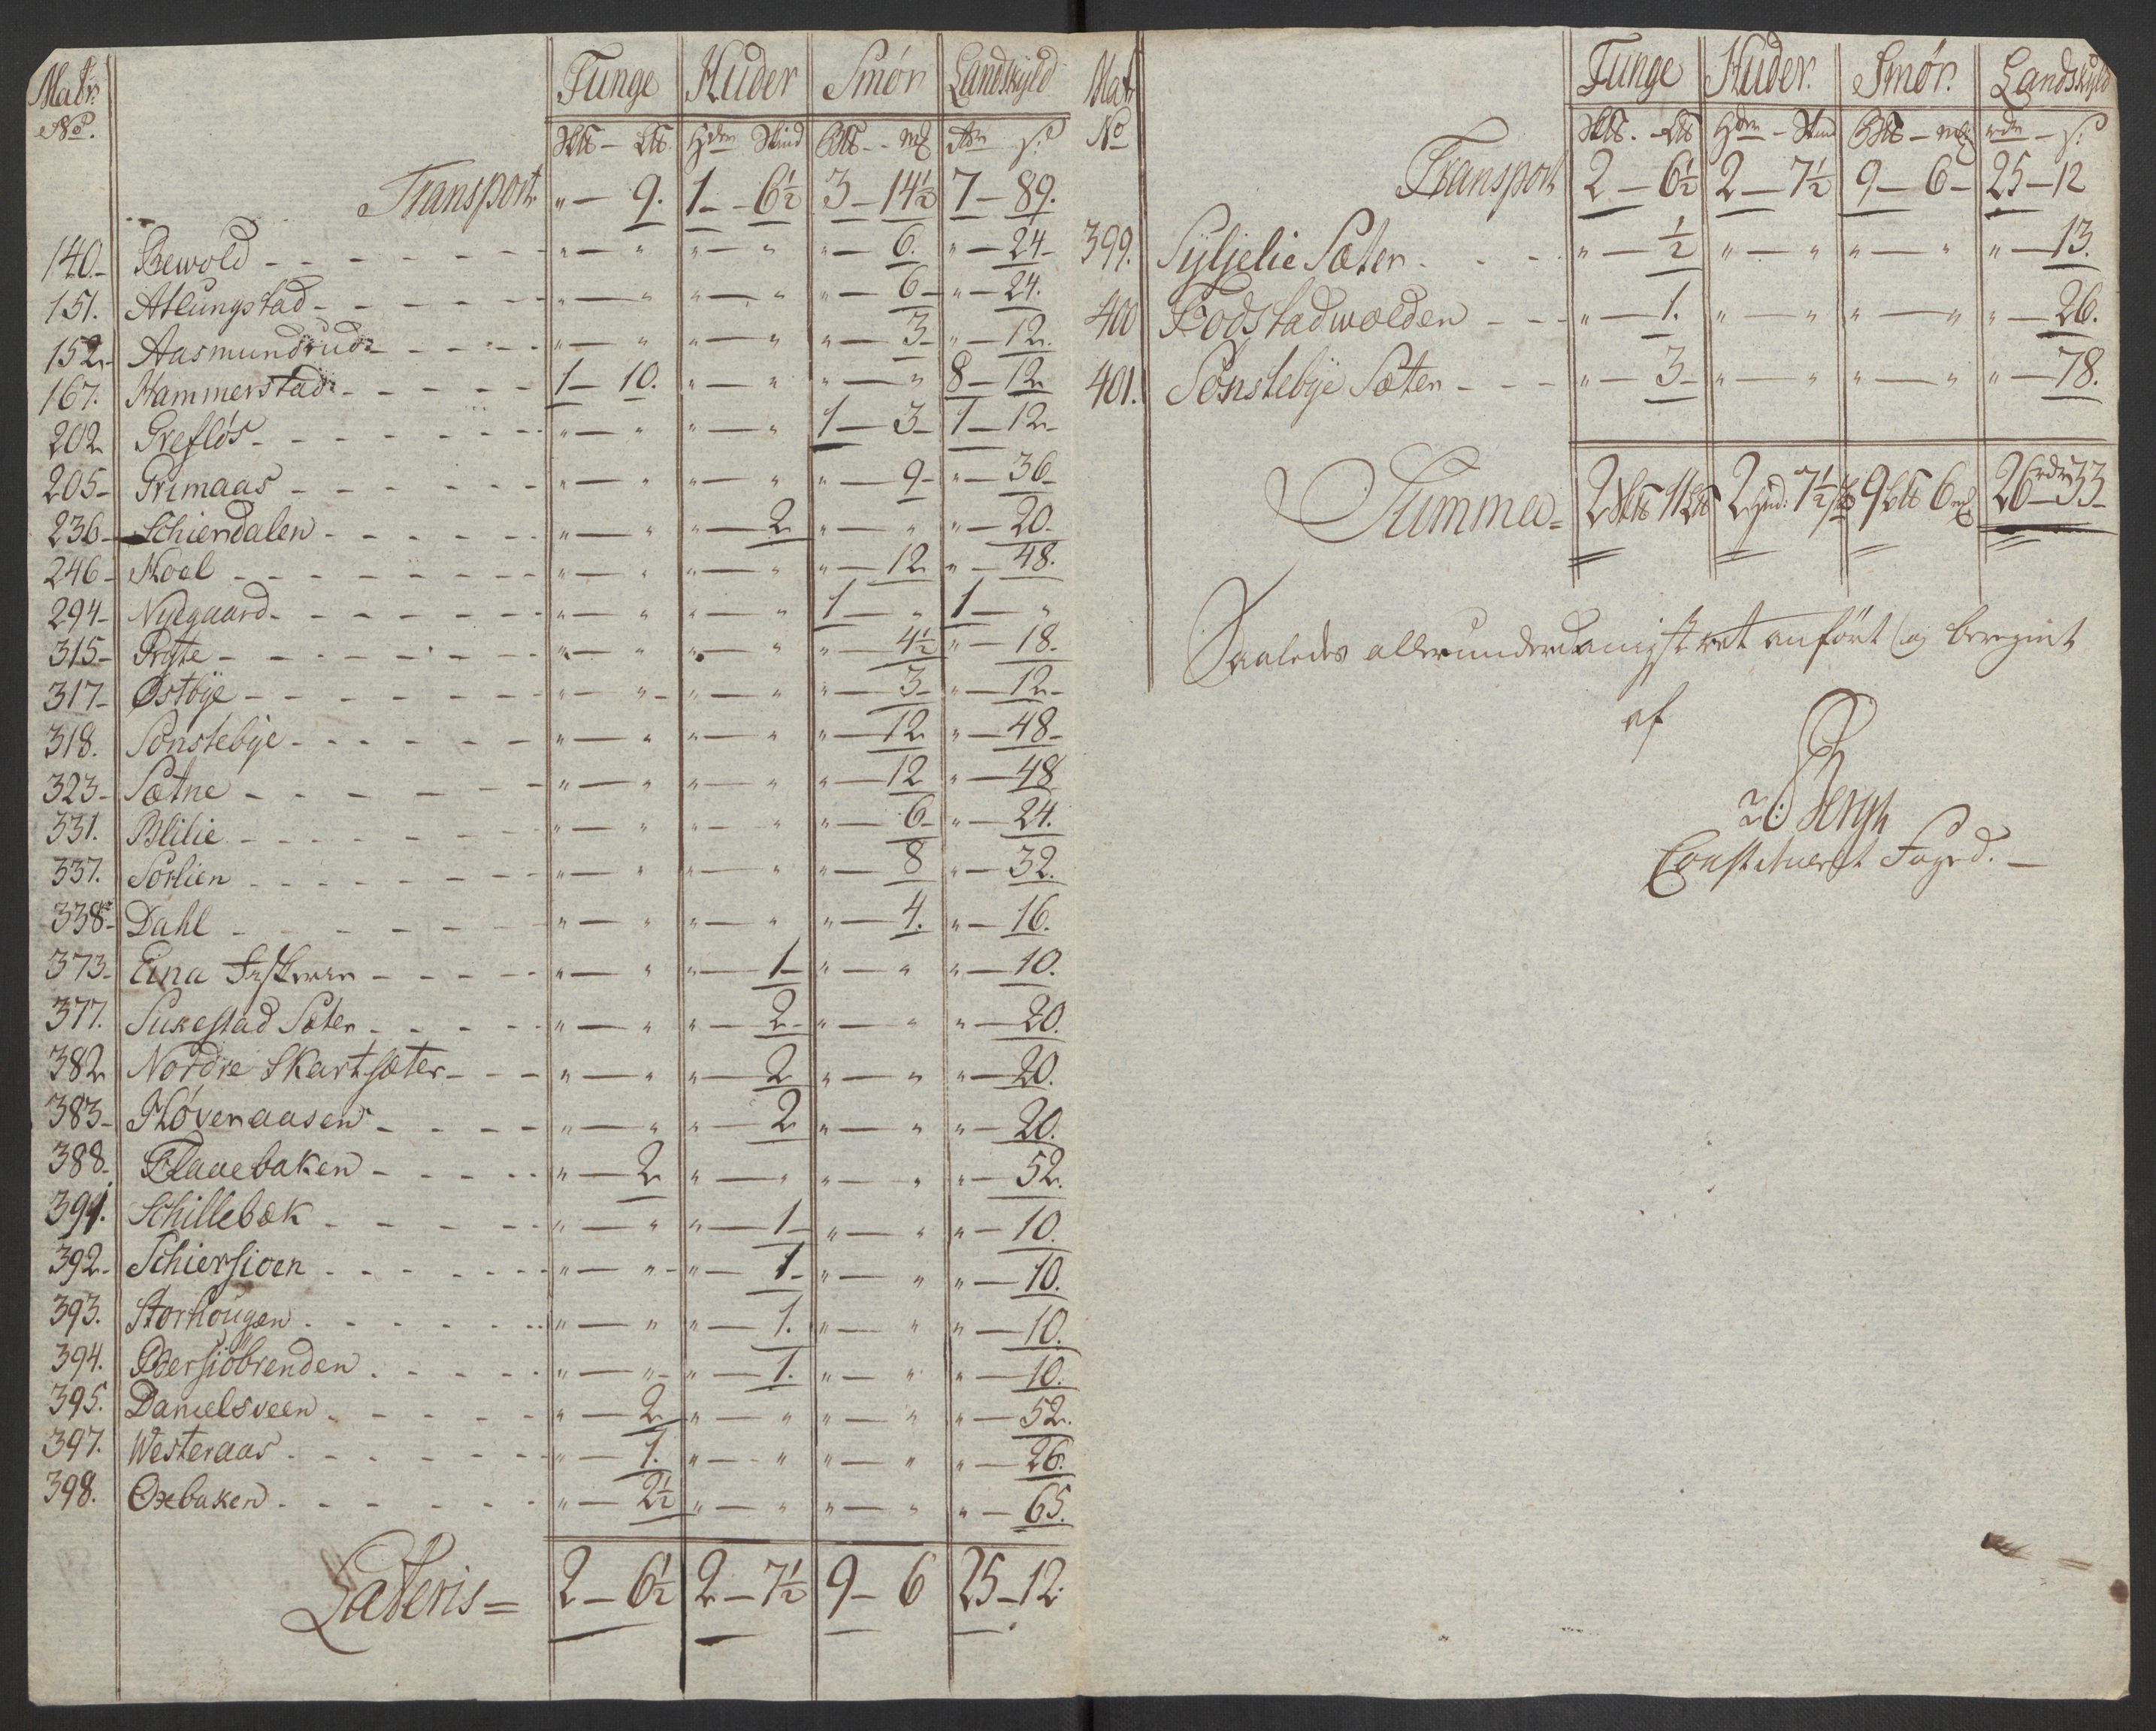 Matr: Tunge Huder Smör Landskyld
No. S℔ - L℔. Hder Skind B℔ - mk rdr s:
Transport „ — 9. 1 - 6½ 3 - 14½ 7 - 89.
140. Bewold „ — „ „ — „ „ — 6. „ — 24.
151. Atlungstad „ — „ „ — „ „ — 6 „ — 24.
152. Aasmundrud „ — „ „ — „ „ — 3 „ — 12.
167. Hammerstad 1 — 10. „ — „ „ — „ 8 — 12
202 Grefløs „ — „ „ — „ 1 — 3 1 — 12
205 Grimaas „ — „ „ — „ „ — 9 „ — 36
236 Schierdalen „ — „ „ — 2 „ — „ „ — 20.
246 Hoel „ — „ „ — „ „ — 12 „ — 48.
294 Nydgaard „ — „ „ — „ 1 — „ 1 — „
315 Ryste „ — „ „ — „ „ — 4½ „ — 18.
317 Østbye „ — „ „ — „ „ — 3 „ — 12
318. Sønstebye „ — „ „ — „ „ — 12 „ — 48
323 Sætne „ — „ „ — „ „ — 12 „ — 48
331. Blilie „ — „ „ — „ „ — 6 „ — 24.
337. Sørlien „ — „ „ — „ „ — 8 „ — 32.
338 Dahl „ — „ „ — „ „ — 4. „ — 16.
373 Eina „ — „ „ — 1 „ — „ „ — 10.
377. Sukestad Sæter „ — „ „ — 2 „ — „ „ — 20.
382 Nordre Skartsæter „ — „ „ — 2 „ — „ „ — 20.
383 Høveraasen „ — „ „ — 2 „ — „ „ — 20.
388. Flaaebaken „ — 2 „ — „ „ — „ „ — 52.
391. Schillebæk „ — „ „ — 1 „ — „ „ — 10.
392. Schiersioen „ — „ „ — 1 „ — „ „ — 10.
393. Storhougen „ — „ „ — 1. „ — „ „ — 10.
394. Odersiöbrenden „ — „ „ — 1. „ — „ „ — 10.
395. Danielsveen „ — 2 „ — „ „ — „ „ — 52.
397. Westeraas „ — 1. „ — „ „ — „ „ — 26.
398. Oxebaken „ — 2½ „ — „ „ — „ „ — 65.
Lateris = 2 — 6½ 2 — 7½ 9 — 6 25 — 12.
Matr Tunge Huder. Smör. Landskyld
No S℔. - L℔ Hder - Skind B℔ - mk rdr - s:
Transport 2 — 6½ 2 — 7½ 9 — 6 25 — 12
399. Syljelie Sæter „ — ½ „ — „ „ — „ „ — 13.
400 Fodstadwolden „ — 1. „ — „ „ — „ „ — 26.
401. Sønstebye Sæter „ — 3 „ — „ „ — „ „ — 78.
Summa = 2 S℔ 11 L℔ 2 Hud: 7½ sk 9 B℔ 6 mk 26 rdr 33
Saaledes allerunderdanigst ret anført og beregnet
af
Bergh
Constitueret Foged.